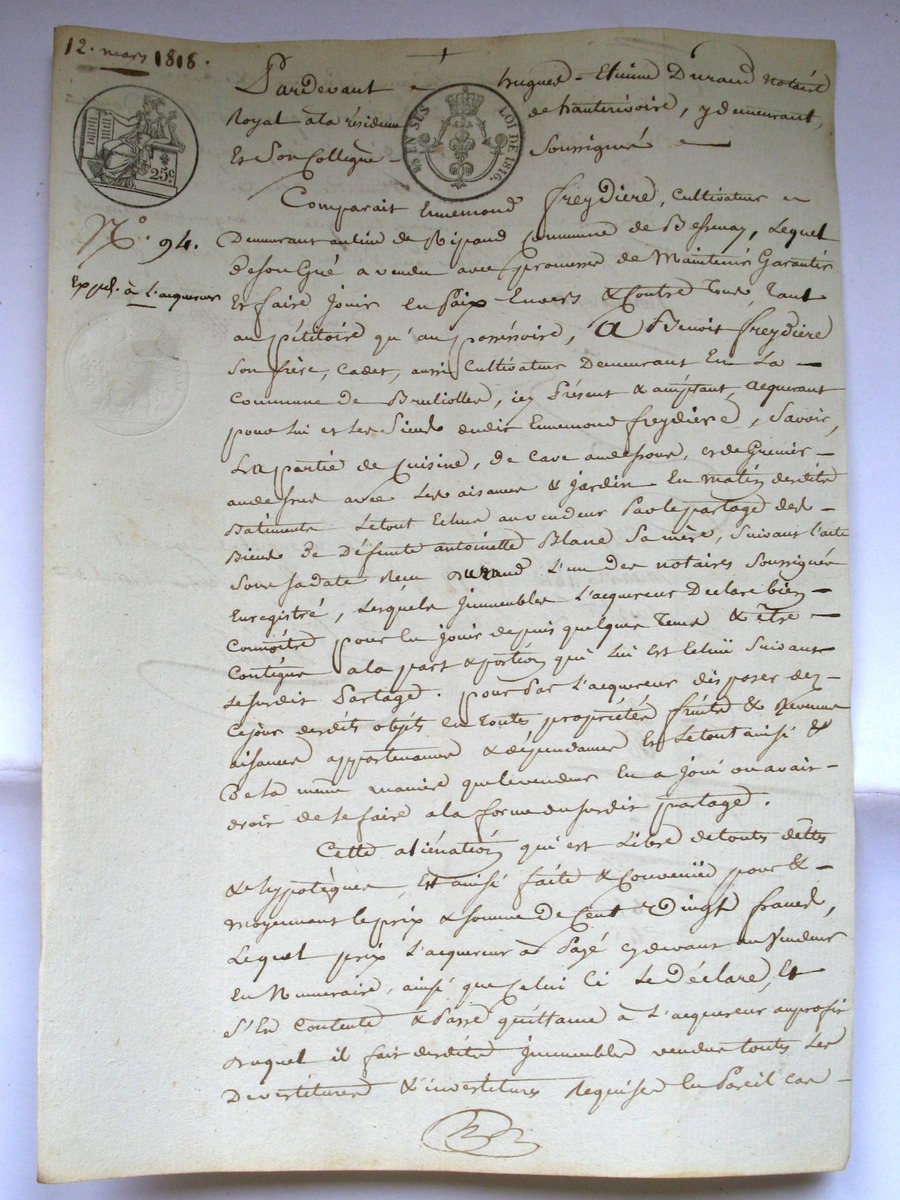 12. mars 1818.
Pardevant hugues-Etienne Durand notaire
Royal à la résidence de hauterivoire, y demeurant,
Et Son Collègue Soussignés
25 EN SUS
LOI DE 1816.
25c
N.o 94.
Exp.
à L'acquereur
Comparait Ennemond freydiere, Cultivateur
Demeurant au lieu de Ripand Commune de Bessenay, Lequel
de son Gré a vendu avec promesse de Maintenir Garantir
Et faire Jouir en paix Envers & Contre Tous, Tant
au pétitoire qu'au possessoire, A Benoit freydiere
Son frère, Cadet, aussi Cultivateur Demeurant En La
Commune de Brulioller, icy Présent & acceptant, acquerant
pour Lui et Les Siens dudit Ennemond freydiere, Savoir,
La partie de Cuisine, de Cave au dessous, et de Grenier
au dessus avec Les aisances & Jardin En matin desdits
Batiments Letout Echu au vendeur Par le partage des
Biens de Défunte antoinette Blanc Sa mère, Suivant l'acte
Sous Sa date Reçu Durand L'un des notaires Soussignés
Enregistré, Lesquels Jmmeubles L'acquereur Declare bien
Connoitre pour En Jouir depuis quelque Tems & être
Contigus a la part & portion qui Lui est Echuë Suivant
Le Susdit Partage. pour Par L'acquereur disposer dez
Cejour desdits objets En toutes propriétés fruits & Revenus
aisances appartenances & dépendances Et Letout ainsi &
De la même manière que le vendeur En a Joui ou avait
droit de le faire a la forme du Susdit partage.
Cette aliénation qui est Libre de toutes dettes
& hypotèques, Est ainsi faite & Convenuë pour &
moyennant le prix & Somme de Cent Vingt francs,
Lequel prix L'acquereur à Payé cy devant au Vendeur
En Numeraire, ainsi que Celui Ci Le Déclare, Et
S'En Contente & Passe quittance à L'acquereur au profit
duquel il fait desdits Jmmeubles vendus toutes Les
Devestitures & investitures Requises En Pareil Cas